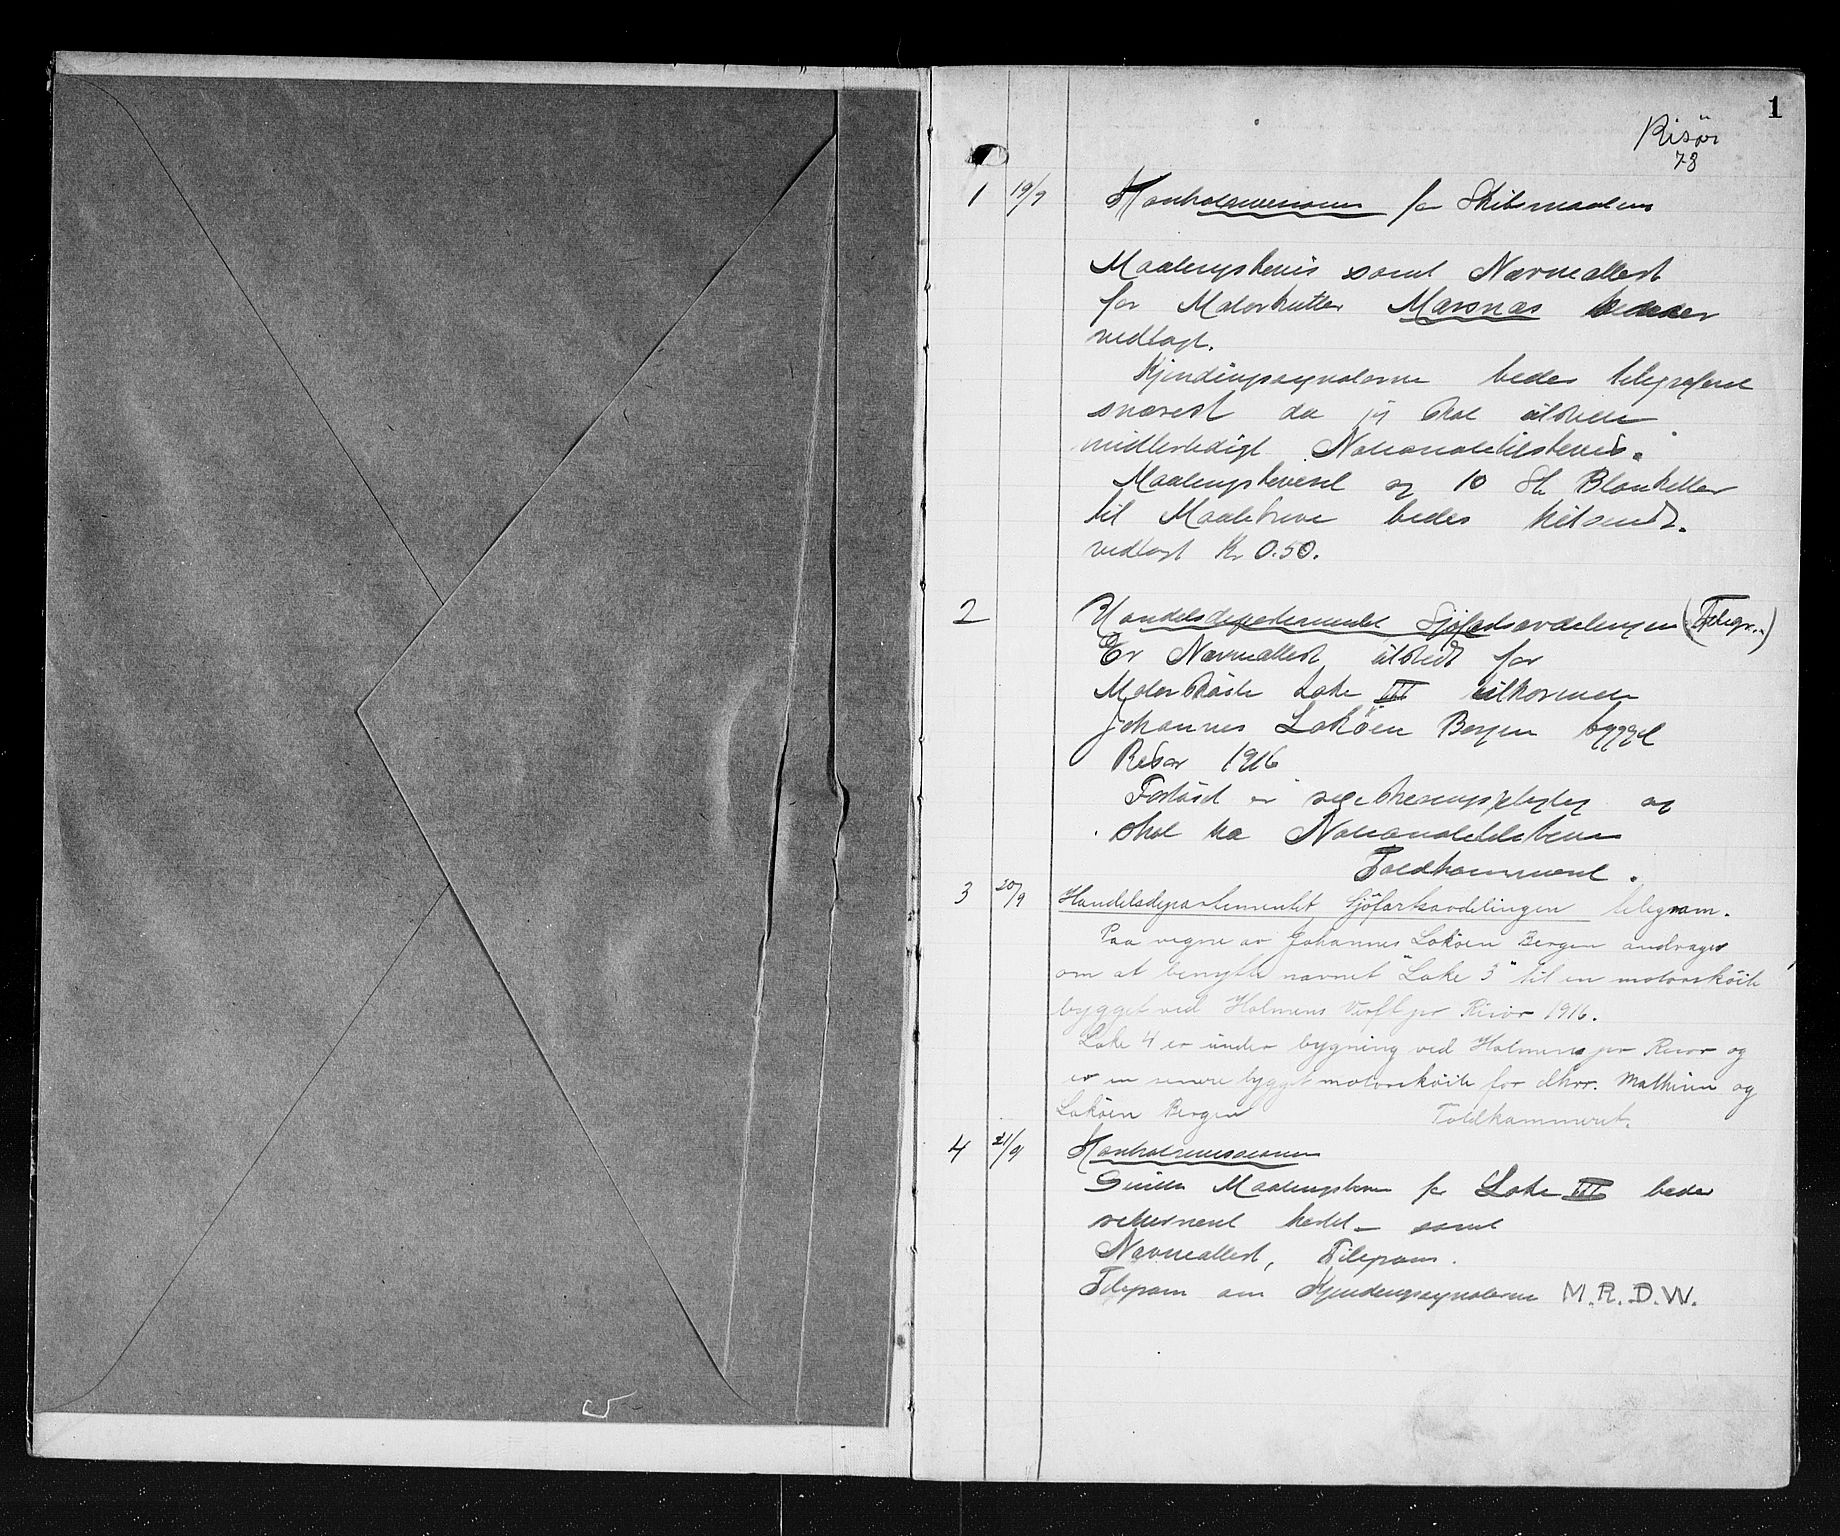 1
Risör
78
1 19/9 Kontrolrevisoren for Skibsmaalens
Maalingsbevis samt Navneattest
for Motorkutter Marsnæs
vedlagt.
Kjendingssignalerne bedes telegraferet
snarest da jeg skal utstede
midlertidigt Nationalitetsbevis.
Maalingsbeviset og 10 Stk Blanketter
til Maalebreve bedes tilsendt.
vedlagt Kr 0.50.
2 Handelsdepartementet Sjöfartsavdelingen (Telegr.)
Er Navneattest utstedt for
Motorsköite Loke III tilhörende
Johannes Loköen Bergen bygget
Risör 1916
Fartöiet er registreringspligtig og
skal ha Nationalitetsbevis
Toldkammeret.
3 20/9 Handelsdepartementet Sjöfartsavdelingen telegram.
Paa vegne av Johannes Loköen Bergen andrages
om at benytte navnet "Loke 3" til en motorsköite
bygget ved Holmens Verft pr Risör 1916.
Loke 4 er under bygning ved Holmens pr Risör og
er en senere bygget motorsköite for dhrr. Mathisen og
Loköen Bergen Toldkammeret.
4 21/9 Kontrolrevisoren
Maalingsbevis for Loke III bedes
returneret samt
Navneattest, Telegram.
Telegram om Kjendingssignalerne M.R.D.W.